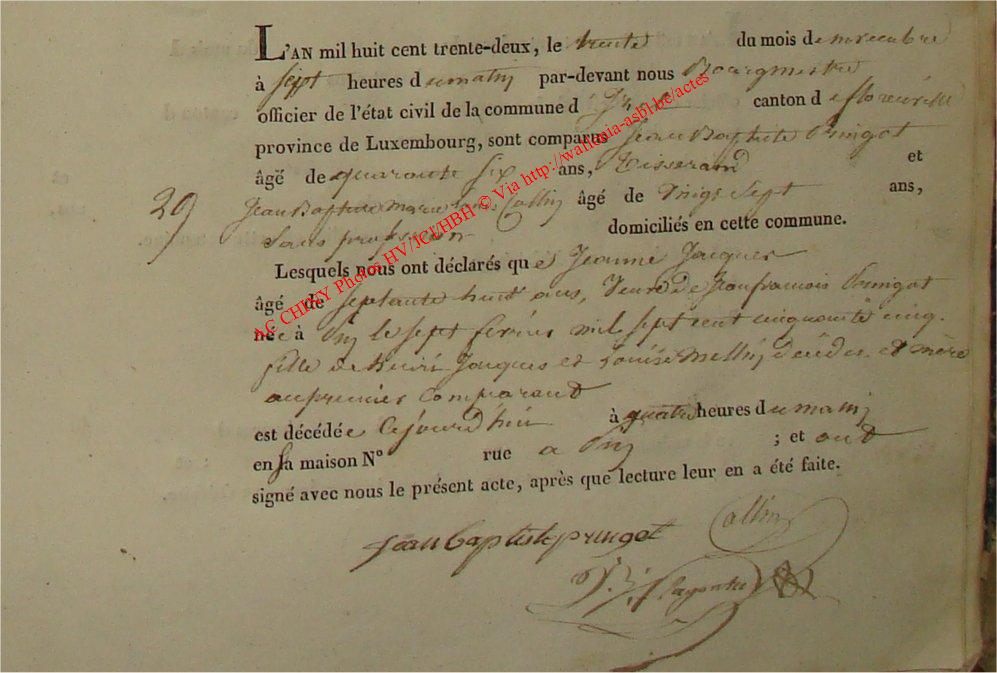 L'AN mil huit cent trente-deux, le trente du mois de decembre
à sept heures du matin par-devant nous Bourgmestre
officier de l'état civil de la commune d canton de florenville
province de Luxembourg, sont comparus Jean Baptiste Pringot
âgé de quarante six ans, Tisserand et
29 Jean Baptiste Marie Collin âgé de vingt sept ans,
Sans profession domiciliés en cette commune.
Lesquels nous ont déclarés que Jeanne Jacques
âgé de septante huit ans, Veuve de Jean francois Pringot
née à Pin le sept fevrier mil sept cent cinquante cinq.
fille de Henri Jacques et Louise decedes et mère
au premier Comparant
est décédée Cejourd'hui à quatre heures du matin
en sa maison N° rue a Pin ; et ont
signé avec nous le présent acte, après que lecture leur en a été faite.
jean baptiste pringot Collin
AC CHINY Photos HV/JCl/HBH © Via http://wallonia-asbl.be/actes